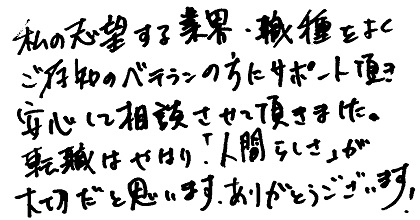 私の志望する業界・職種をよく
ご存知のベテランの方にサポート頂き
安心して相談させて頂きました。
転職はやはり「人間らしさ」が
大切だと思います。ありがとうございます!